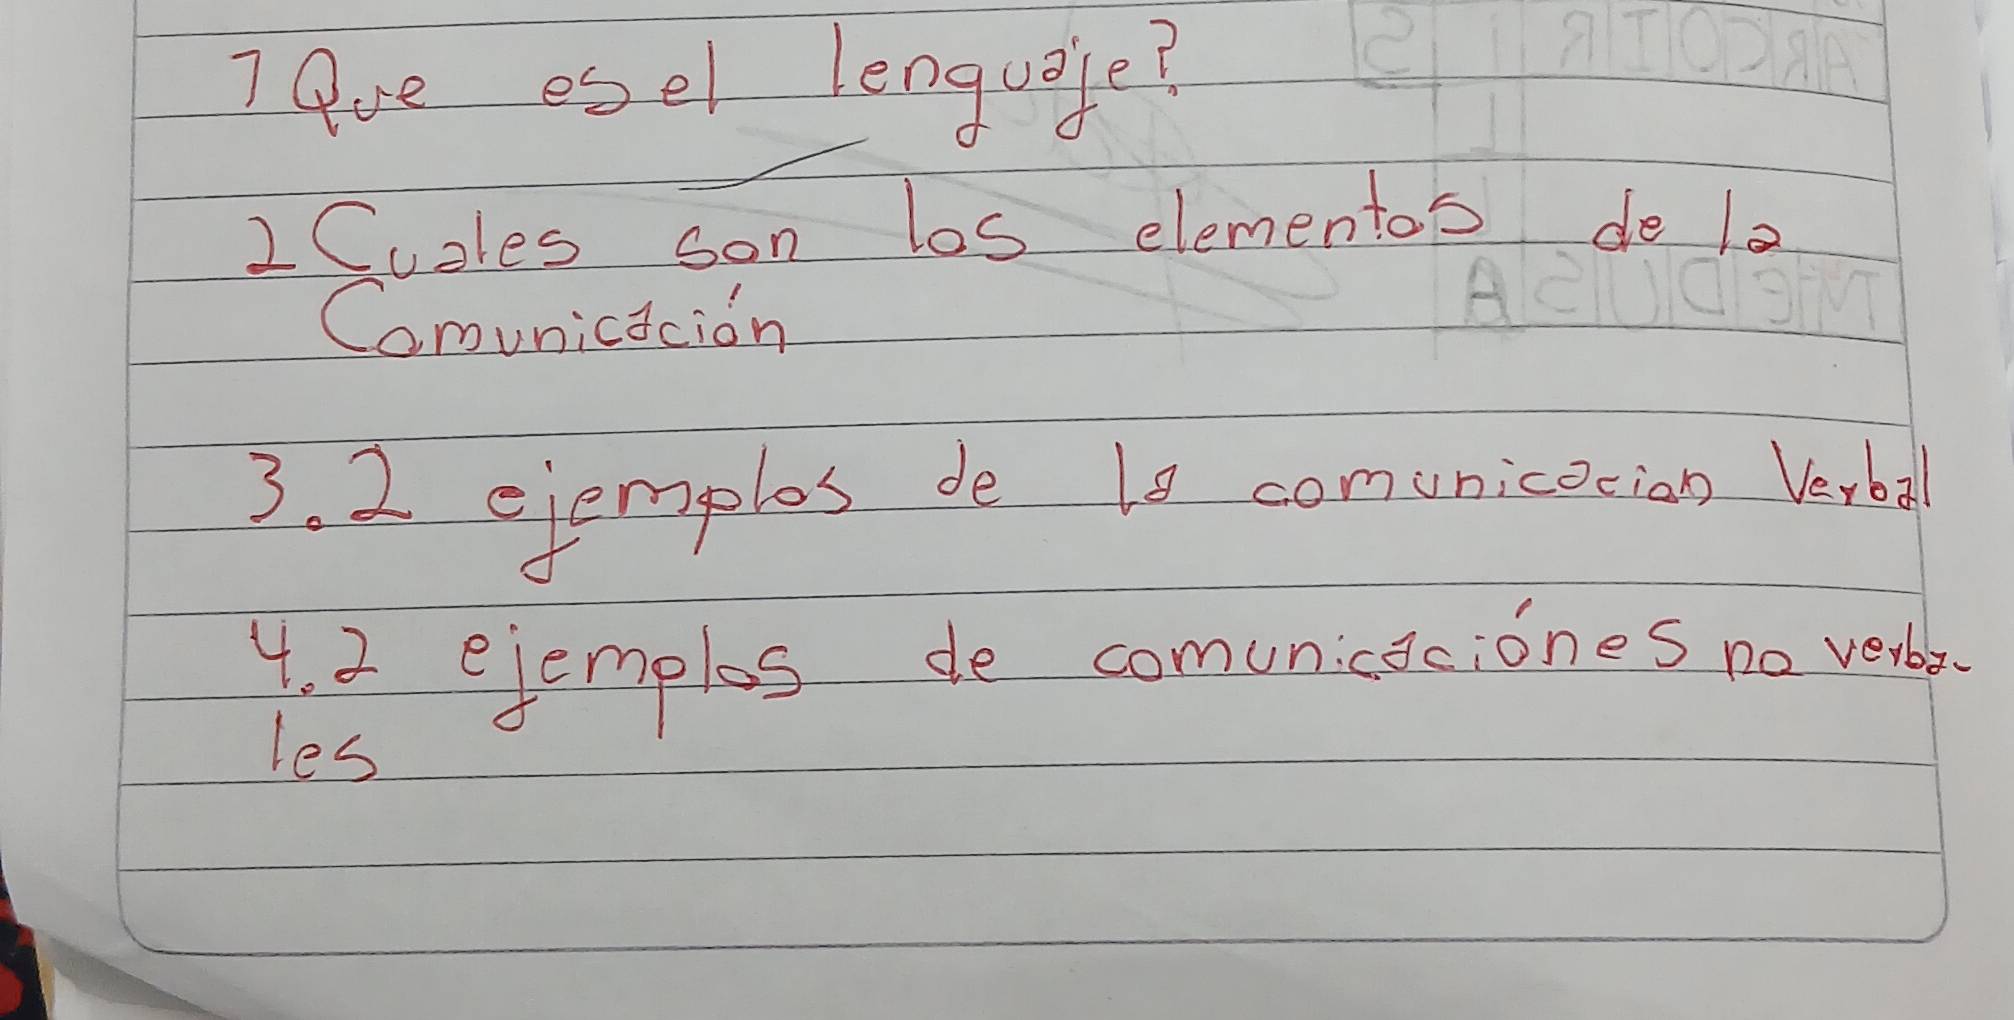 1 Que es el lenguaje?
2 Cuales son los elementos de la
Comunicación
3. 2 ejemplos de la comunicacion Verbal
4. 2 ejemplos de comunicaciónes no verba-
les